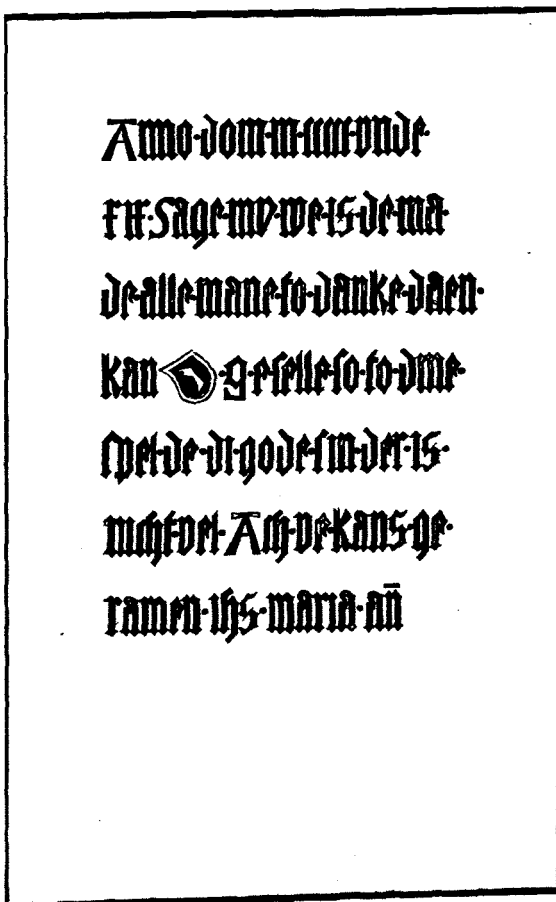 Anno·dom·m·cccc·vnde·
rii·Sage·my·we·is·de·ma·
de·alle·mane·to·danke·daen·
kan ·g·eselle·so·to·dme·
spel·de·di·gode·sin·der·is·
nicht·vel·Ach·we·kans·ge·
ramen·ihs·maria·an̄